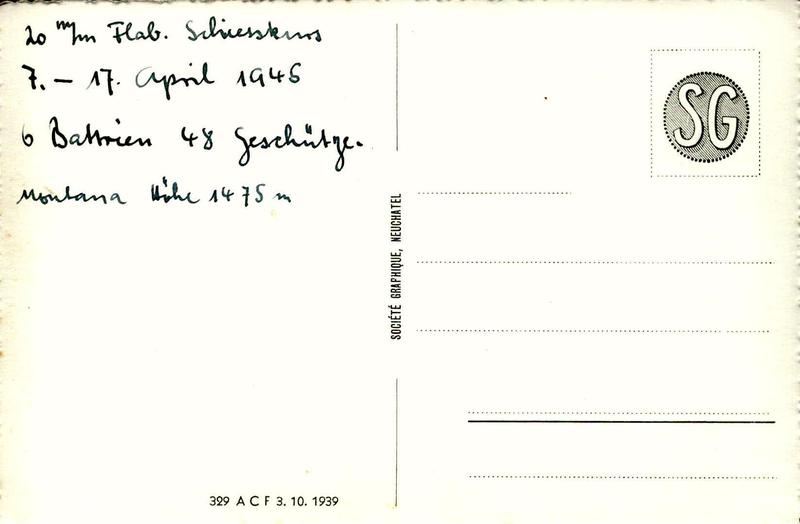 20 m/m Flab. Schiesskurs
7. – 17. April 1945
6 Battrien 48 Geschütze.
Montana Höhe 1475 m
SG
SOCIÉTÉ GRAPHIQUE, NEUCHATEL
329 A C F 3. 10. 1939